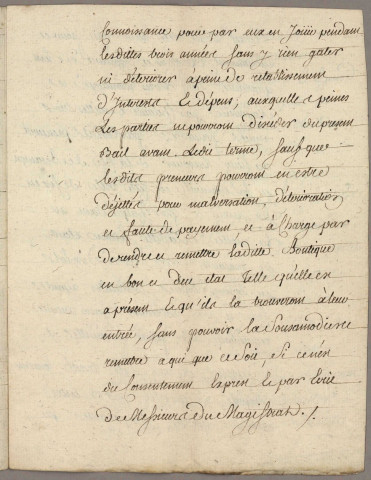 Connoissance pour par eux en Joüir pendant
lesdittes trois années sans y rien gater
ni déteriorer a peine de retablissement
d'Interests & dépens, auxquelles peines
Les parties ne pourront du présent
Bail avant Ledit terme, sauf que
lesdits preneurs pourront en estre
déjettés pour malversation, déterioration
et faute de payement et à Charge par
de rendre et remettre laditte Boutique
en bon et deu etat Telle quelle est
a présent & qu'ils la trouveront à leur
entrée, sans pouvoir la Sousamodier ni
remettre a qui que ce Soit, Si ce n'est
du Consentement Exprès & par Ecrit
de Messieurs du Magistrat ./.